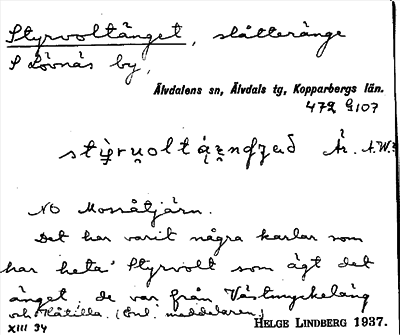 Styrvoltänget, slåtteränge
S Lövnäs by,
Älvdalens sn, Älvdals tg, Kopparbergs län.
472 G 107
Är. A.W.:
NO Mossåtjärn.
Det har varit några karlar som
har heta' Styrvolt som ägt det
änget, de var från Västmyckeläng
och Klåtilla. (Enl. meddelaren)
XIII 34 HELGE LINDBERG 1937.